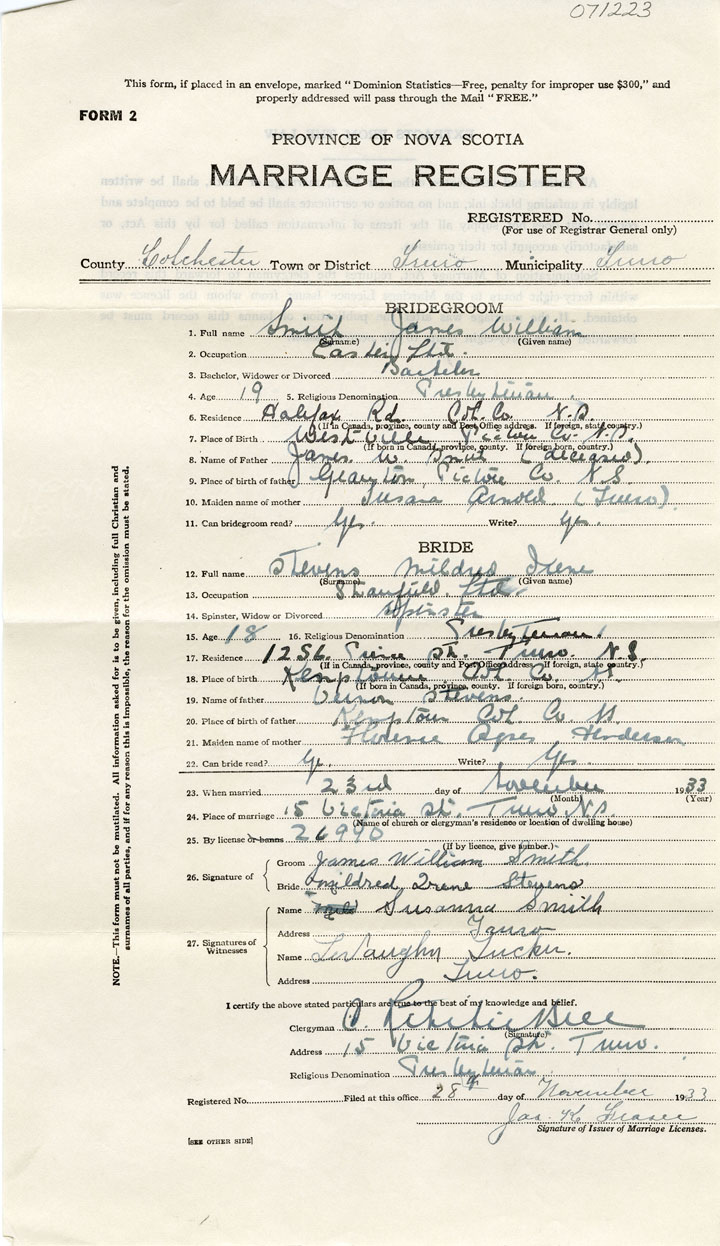 071223
This form, if placed in an envelope, marked "Dominion Statistics—Free, penalty for improper use $300," and
properly addressed will pass through the Mail "FREE."
FORM 2
PROVINCE OF NOVA SCOTIA
MARRIAGE REGISTER
REGISTERED No.
(For use of Registrar General only)
County Colchester Town or District Truro Municipality Truro
BRIDEGROOM
1. Full name Smith James William
(Surname) (Given name)
2. Occupation Eastern Ltd.
3. Bachelor, Widower or Divorced Bachelor
4. Age 19 5. Religious Denomination Presbyterian
6. Residence Halifax Rd. Col. Co. N.S.
(If in Canada, province, county and Post Office address. If foreign, state country.)
7. Place of Birth Westville Pictou Co. N.S.
(If born in Canada, province, county. If foreign born, country.)
8. Name of Father James W. Smith (deceased)
9. Place of birth of father Pictou Co. N.S.
10. Maiden name of mother Susana Arnold (Truro)
11. Can bridegroom read? Yes. Write? Yes.
BRIDE
12. Full name Stevens Mildred Irene
(Surname) (Given name)
13. Occupation Stanfield Ltd.
14. Spinster, Widow or Divorced Spinster
15. Age 18 16. Religious Denomination Presbyterian
17. Residence Prince St. Truro. N.S.
(If in Canada, province, county and Post Office address. If foreign, state country.)
18. Place of birth Kemptown Col. Co. N.S.
(If born in Canada, province, county. If foreign born, country.)
19. Name of father Vernon Stevens.
20. Place of birth of father Kemptown Col. Co. N.S.
21. Maiden name of mother Florence Agnes Henderson
22. Can bride read? Yes. Write? Yes.
23. When married 23rd day of November 1933
(Month) (Year)
24. Place of marriage 15 Victoria St. Truro N.S.
(Name of church or clergyman's residence or location of dwelling house)
25. By license or banns 26990
(If by licence, give number.)
26. Signature of
Groom James William Smith.
Bride Mildred Irene Stevens
27. Signatures of Witnesses
Name Susanna Smith
Address Truro
Name LeVaughn Tucker.
Address Truro.
I certify the above stated particulars are true to the best of my knowledge and belief.
Clergyman
(Signature)
Address 15 Victoria St. Truro.
Religious Denomination Presbyterian
Registered No. Filed at this office 28th day of November 1933
Jas. K. Fraser
Signature of Issuer of Marriage Licenses.
[SEE OTHER SIDE]
NOTE.—This form must not be mutilated. All information asked for is to be given, including full Christian and
surnames of all parties, and if for any reason this is impossible, the reason for the omission must be stated.